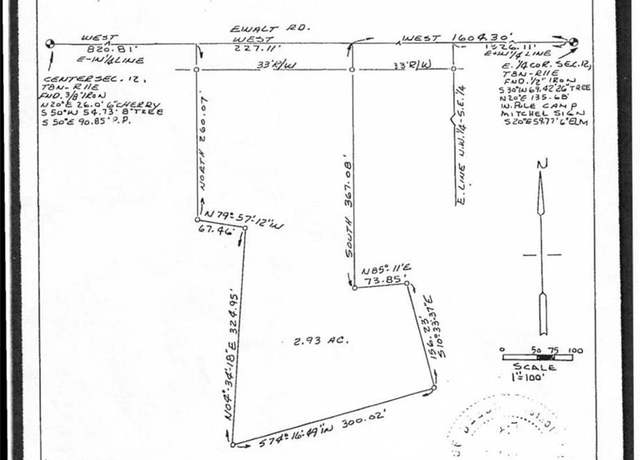 EWALT RD.
WEST WEST WEST 1604.30'
820.81' 227.11' 1326.11'
E-W 1/4 LINE E-W 1/4 LINE
33' R/W 33' R/W
CENTER SEC. 12,
T8N-R11E
FND. 3/8" IRON
N20°E 26.0' 6" CHERRY
S50°W 54.73' 8" TREE
S50°E 90.85' P.P.
E. 1/4 COR. SEC. 12,
T8N-R11E
FND. 1/2" IRON
S30°W 69.42' 26" TREE
N20°E 135.68'
W. POLE CAMP
MITCHEL SIGN
S20°E 59.77' 6" ELM
NORTH 260.07'
SOUTH 367.08'
E. LINE N.W. 1/4-S.E. 1/4
N79°-57'-12"W
67.46'
N85°-11'E
73.85'
156.23'
S10°-33'-37"E
N04°-34'-18"E 324.95'
2.93 AC.
S74°-16'-49"W 300.02'
N
0 50 75 100
SCALE
1"=100'